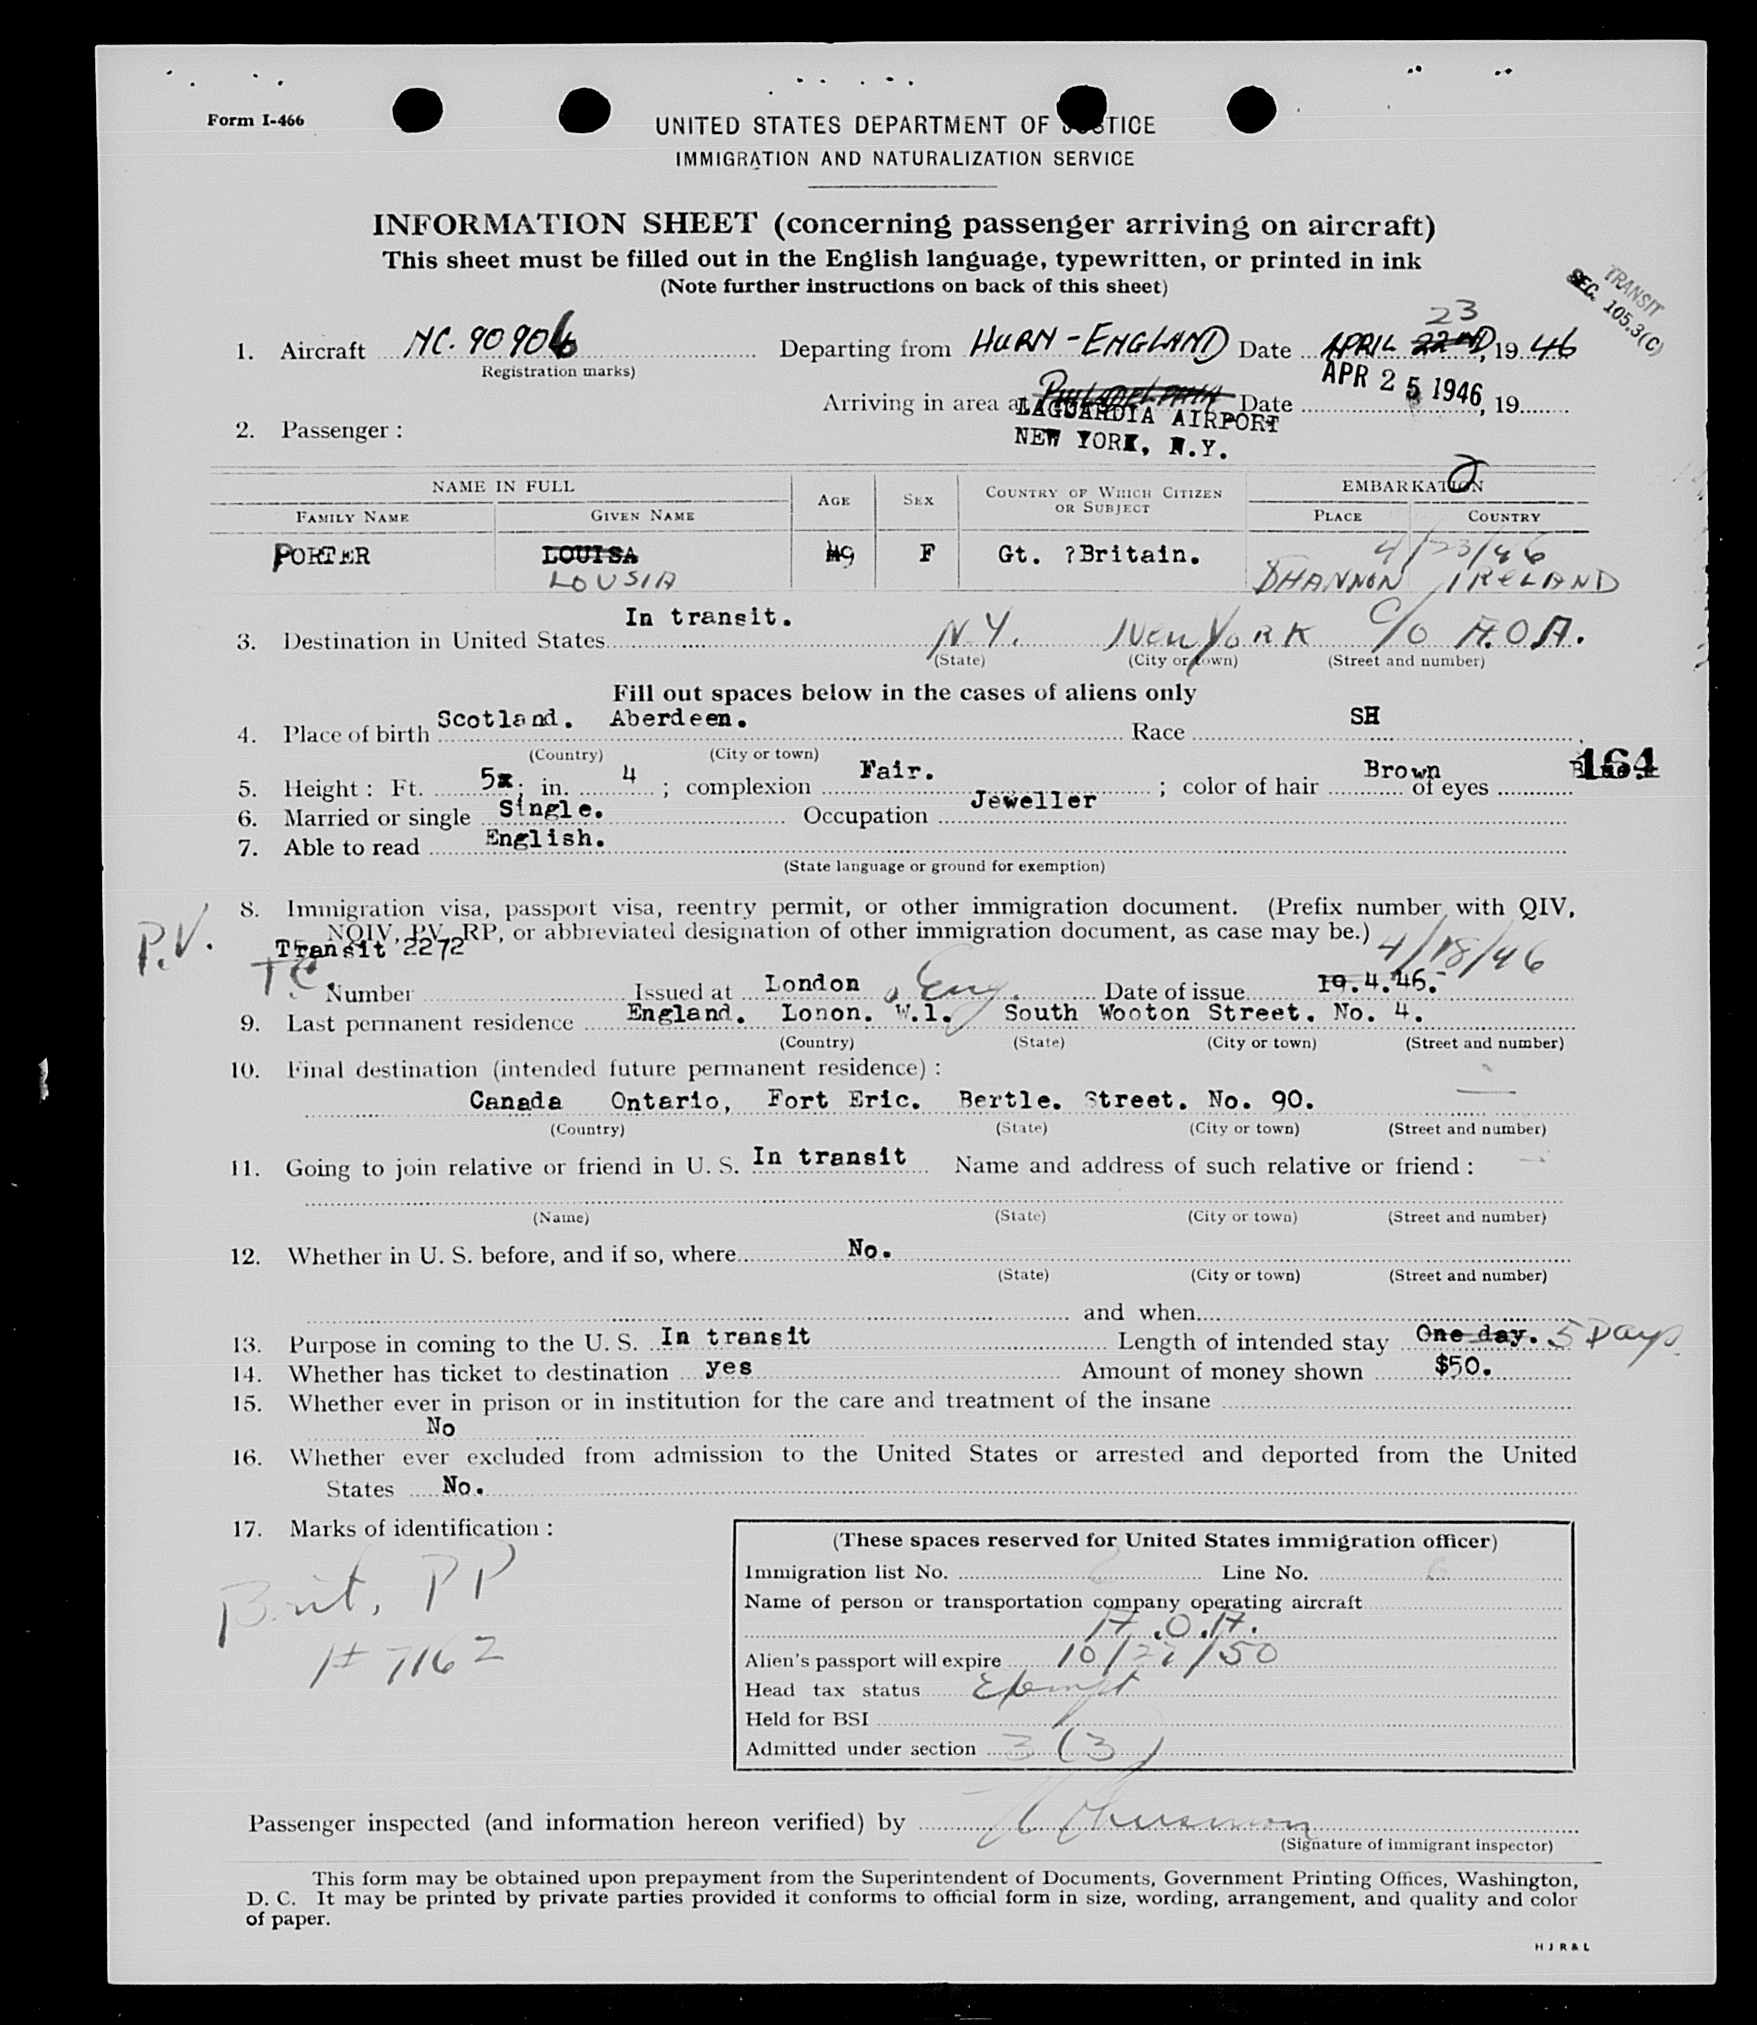 Form I-466
UNITED STATES DEPARTMENT OF JUSTICE
IMMIGRATION AND NATURALIZATION SERVICE
INFORMATION SHEET (concerning passenger arriving on aircraft)
This sheet must be filled out in the English language, typewritten, or printed in ink
(Note further instructions on back of this sheet)
TRANSIT
SEC. 105.3(C)
23
1. Aircraft NC. 90906 Departing from HURN - ENGLAND Date APRIL 22ND, 1946
Registration marks)
APR 25 1946
Arriving in area at PHILADELPHIA Date , 19
LAGUARDIA AIRPORT
NEW YORK, N.Y.
2. Passenger :
NAME IN FULL AGE SEX COUNTRY OF WHICH CITIZEN OR SUBJECT EMBARKATION
2
FAMILY NAME GIVEN NAME PLACE COUNTRY
PORTER LOUISA F Gt. ?Britain. 4/23/46
LOUSIA SHANNON IRELAND
In transit.
3. Destination in United States N.Y. New YORK C/O A.O.A.
(State) (City or town) (Street and number)
Fill out spaces below in the cases of aliens only
4. Place of birth Scotland. Aberdeen. Race SH
(Country) (City or town)
164
5. Height : Ft. 5x ; in. 4 ; complexion Fair. ; color of hair Brown of eyes
6. Married or single Single. Occupation Jeweller
7. Able to read English.
(State language or ground for exemption)
P.V.
8. Immigration visa, passport visa, reentry permit, or other immigration document. (Prefix number with QIV,
NQIV, PV, RP, or abbreviated designation of other immigration document, as case may be.)
Transit 2272 4/18/46
TC.
Number Issued at London, Eng. Date of issue 19.4.46.
9. Last permanent residence England. Lonon. W.1. South Wooton Street. No. 4.
(Country) (State) (City or town) (Street and number)
10. Final destination (intended future permanent residence) :
Canada Ontario, Fort Eric. Bertle. Street. No. 90.
(Country) (State) (City or town) (Street and number)
11. Going to join relative or friend in U. S. In transit Name and address of such relative or friend :
(Name) (State) (City or town) (Street and number)
12. Whether in U. S. before, and if so, where No.
(State) (City or town) (Street and number)
and when
13. Purpose in coming to the U. S. In transit Length of intended stay One day. 5 Days.
14. Whether has ticket to destination yes Amount of money shown $50.
15. Whether ever in prison or in institution for the care and treatment of the insane
No
16. Whether ever excluded from admission to the United States or arrested and deported from the United
States No.
17. Marks of identification :
Brit, PP
# 7162
(These spaces reserved for United States immigration officer)
Immigration list No. 6 Line No. 6
Name of person or transportation company operating aircraft
A.O.A.
Alien's passport will expire 10/22/50
Head tax status Exempt
Held for BSI
Admitted under section 3 (3)
Passenger inspected (and information hereon verified) by
(Signature of immigrant inspector)
This form may be obtained upon prepayment from the Superintendent of Documents, Government Printing Offices, Washington,
D. C. It may be printed by private parties provided it conforms to official form in size, wording, arrangement, and quality and color
of paper.
H J R & L